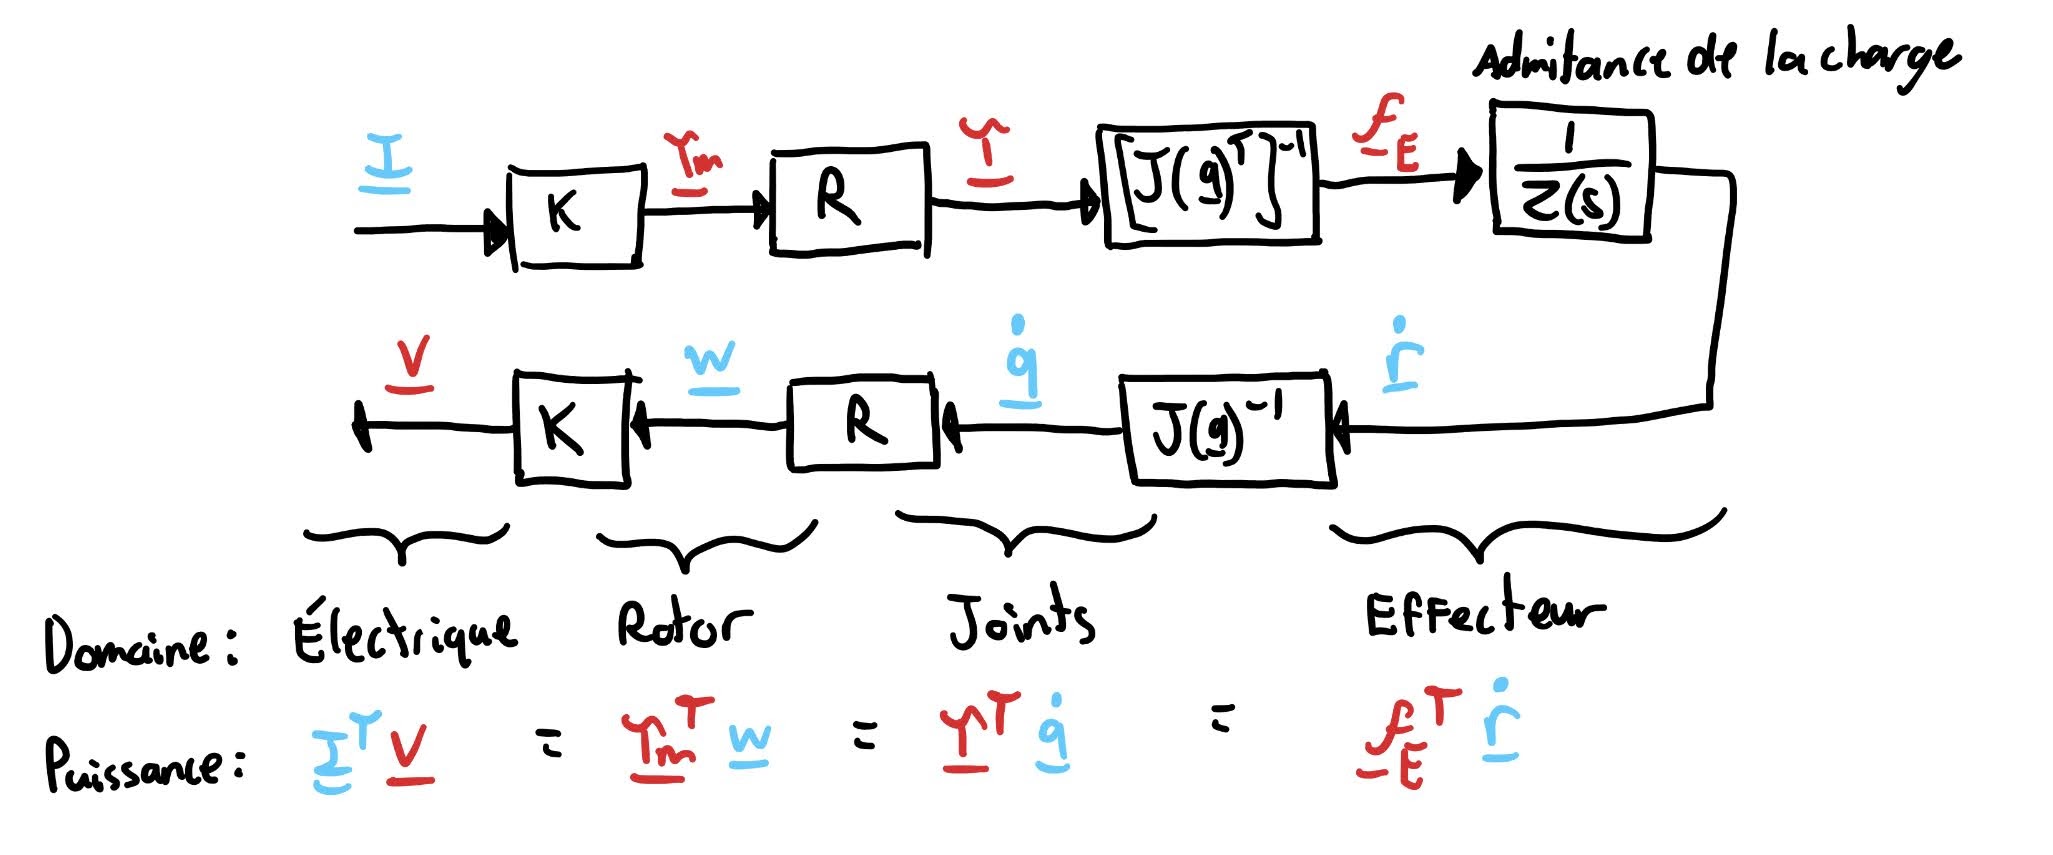 Admitance de la charge
I K τm R τ [J(q)^T]^-1 f_E 1/Z(s)
V K w R q̇ J(q)^-1 ṙ
Domaine: Électrique Rotor Joints Effecteur
Puissance: I^T V = τm^T w = τ^T q̇ = f_E^T ṙ